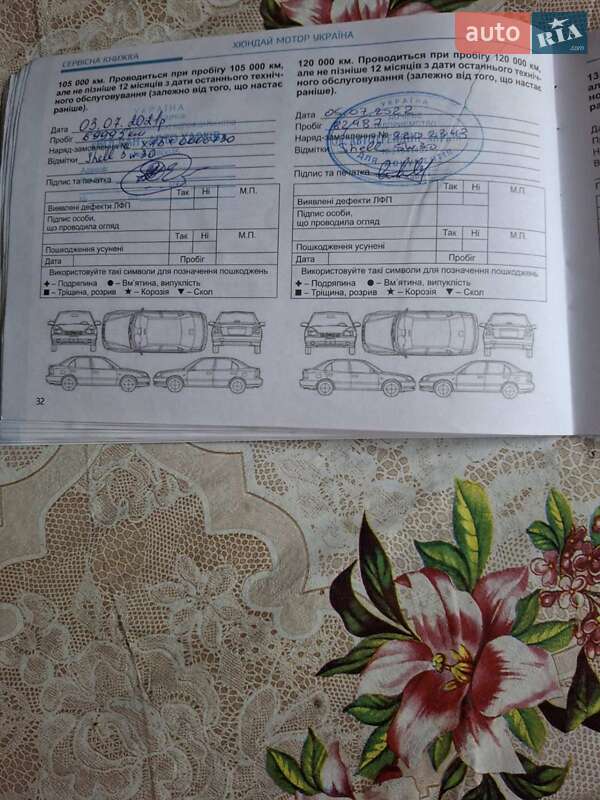 auto RIA .com
СЕРВІСНА КНИЖКА
ХЮНДАЙ МОТОР УКРАЇНА
105 000 км. Проводиться при пробігу 105 000 км,
але не пізніше 12 місяців з дати останнього техніч-
ного обслуговування (залежно від того, що настає
раніше).
УКРАЇНА
Дата 03.07.2021р
Пробіг
Наряд-замовлення №
Відмітки Shell 5w30
Підпис та печатка
Так Ні М.П.
Виявлені дефекти ЛФП
Підпис особи,
що проводила огляд
Так Ні М.П.
Пошкодження усунені
Дата Пробіг
Використовуйте такі символи для позначення пошкоджень
+ – Подряпина ● – Вм'ятина, випуклість
■ – Тріщина, розрив ★ – Корозія ▼ – Скол
32
120 000 км. Проводиться при пробігу 120 000 км,
але не пізніше 12 місяців з дати останнього техніч-
ного обслуговування (залежно від того, що настає
раніше).
УКРАЇНА
Дата 05.07.2022
Пробіг 82487
Наряд-замовлення №
Відмітки Shell 5w30
Підпис та печатка
Так Ні М.П.
Виявлені дефекти ЛФП
Підпис особи,
що проводила огляд
Так Ні М.П.
Пошкодження усунені
Дата Пробіг
Використовуйте такі символи для позначення пошкоджень
+ – Подряпина ● – Вм'ятина, випуклість
■ – Тріщина, розрив ★ – Корозія ▼ – Скол